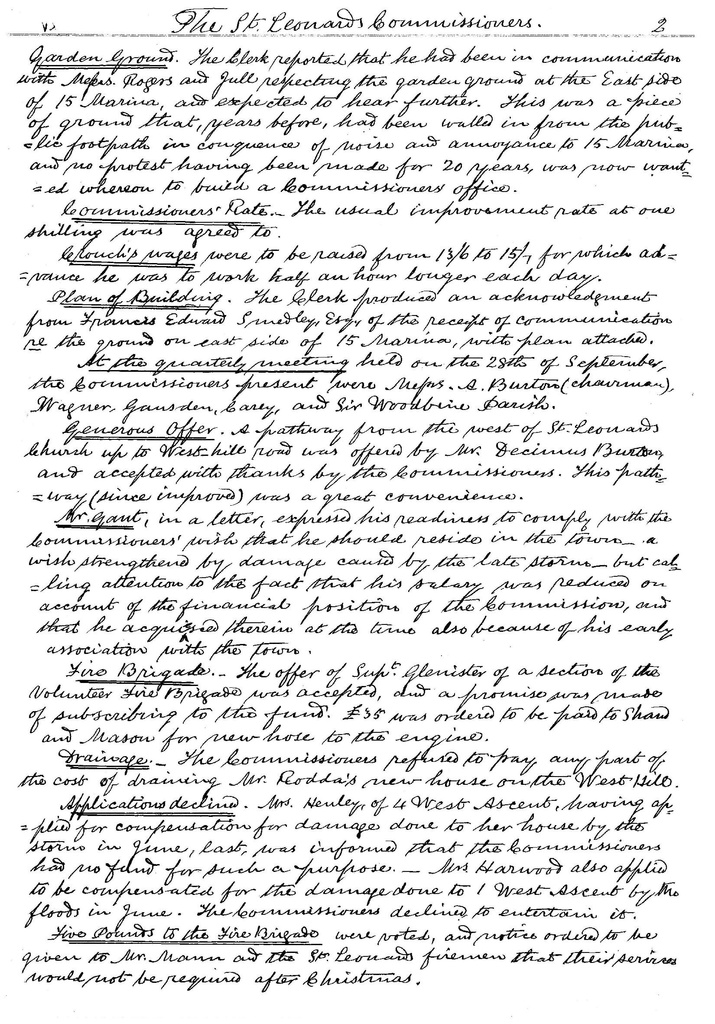 The St. Leonards Commissioners. 2
Garden Ground. The Clerk reported that he had been in communication
with Messrs. Rogers and Jull respecting the garden ground at the East side
of 15 Marina, and expected to hear further. This was a piece
of ground that, years before, had been walled in from the pub=
=lic footpath in consquence of noise and annoyance to 15 Marina,
and no protest having been made for 20 years, was now want=
=ed whereon to build a Commissioners' office.
Commissioners' Rate. – The usual improvement rate at one
shilling was agreed to.
Clouch's wages were to be raised from 13/6 to 15/-, for which ad=
=vance he was to work half an hour longer each day.
Plan of Building. The Clerk produced an acknowledgment
from Francis Edward Smedley, Esqr. of the receipt of communication
re the ground on east side of 15 Marina, with plan attached.
At the quarterly meeting held on the 28th of September,
the Commissioners present were Messrs. A. Burton (chairman),
Wagner, Gausden, Carey, and Sir Woodbine Parish.
Generous Offer. A pathway from the west of St. Leonards
Church up to West-hill road was offered by Mr. Decimus Burton,
and accepted with thanks by the Commissioners. This path=
=way (since improved) was a great convenience.
Mr. Gant, in a letter, expressed his readiness to comply with the
Commissioners' wish that he should reside in the town – a
wish strengthend by damage caused by the late storm – but cal=
=ling attention to the fact that his salary was reduced on
account of the financial position of the Commission, and
that he acquiesced therein at the time also because of his early
association with the town.
Fire Brigade. – The offer of Supt. Glenister of a section of the
Volunteer Fire Brigade was accepted, and a promise was made
of subscribing to the fund. £35 was ordered to be paid to Shand
and Mason for new hose to the engine.
Drainage. – The Commissioners refused to pay any part of
the cost of draining Mr. Rodda's new house on the West Hill.
Applications declined. Mrs. Henley, of 4 West Ascent, having ap=
=plied for compensation for damage done to her house by the
storm in June, last, was informed that the Commissioners
had no fund for such a purpose. – Mrs Harwood also applied
to be compensated for the damage done to 1 West Ascent by the
floods in June. The Commissioners declined to entertain it.
Five Pounds to the Fire Brigade were voted, and notice ordered to be
given to Mr. Mann and the St. Leonards firemen that their services
would not be required after Christmas.